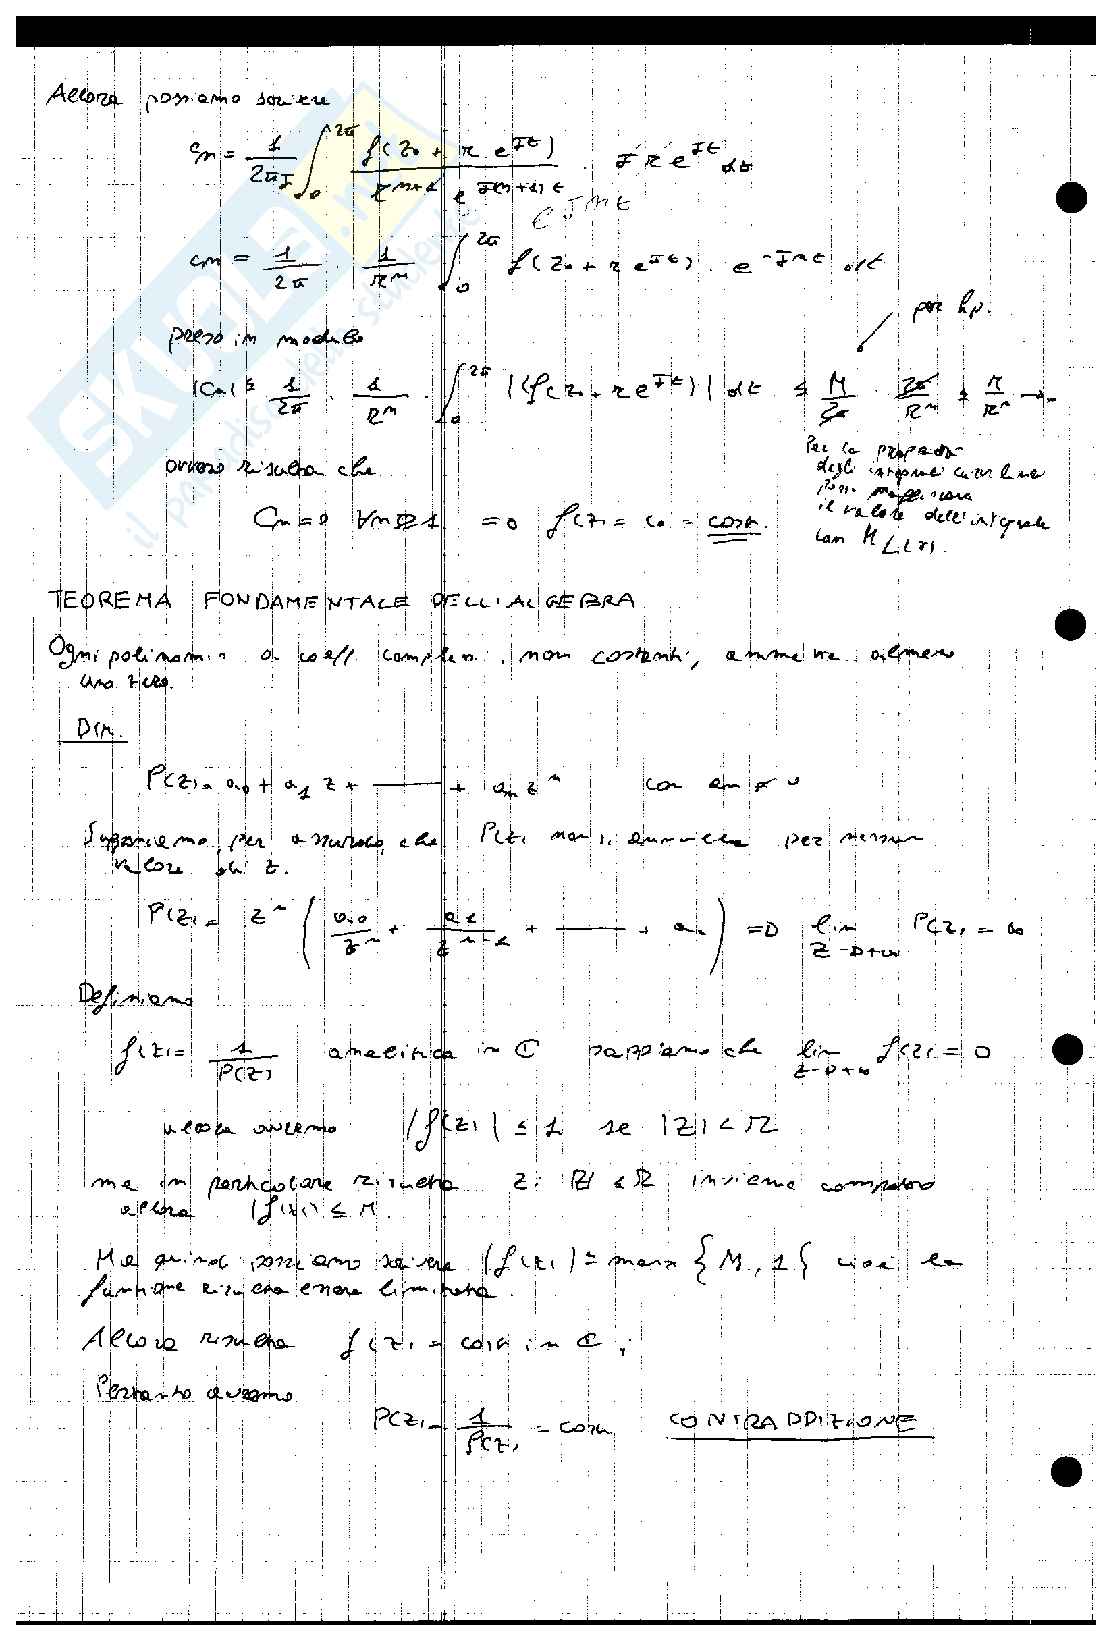 Allora possiamo scrivere
cn = 1/2πJ ∫_0^2π f(z0 + r e^Jt) / r^n+1 e^J(n+1)t · J r e^Jt dt
e^Jnt
cn = 1/2π · 1/r^n ∫_0^2π f(z0 + r e^Jt) · e^-Jnt dt
per hp.
preso in modulo
|cn| ≤ 1/2π · 1/r^n · ∫_0^2π |f(z0 + r e^Jt)| dt ≤ M/2π · 2π/r^n = M/r^n →
Per la proprietà
degli integrali curvilinei
posso maggiorare
il valore dell'integrale
con M L(γ).
ovvero risulta che
Cn = 0 ∀n ≥ 1 => f(z) = c0 = cost.
TEOREMA FONDAMENTALE DELL'ALGEBRA
Ogni polinomio a coeff. complessi, non costanti, ammette almeno
uno zero.
Dim.
P(z) = a0 + a1 z + —— + an z^n con an ≠ 0
Supponiamo per assurdo che P(z) non si annulla per nessun
valore di z.
P(z) = z^n ( a0/z^n + a1/z^n-1 + —— + an ) => lim z→+∞ P(z) = ∞
Definiamo
f(z) = 1/P(z) analitica in ℂ sappiamo che lim z→+∞ f(z) = 0
allora avremo |f(z)| ≤ 1 se |z| < r
ma in particolare risulta z: |z| ≤ R insieme compatto
allora |f(z)| ≤ M.
Ma quindi possiamo scrivere |f(z)| = max { M, 1 } cioè la
funzione risulta essere limitata.
Allora risulta f(z) = cost in ℂ,
Pertanto avremo
P(z) = 1/f(z) = cost CONTRADDIZIONE
SKUOLA.net
il paradiso dello studente